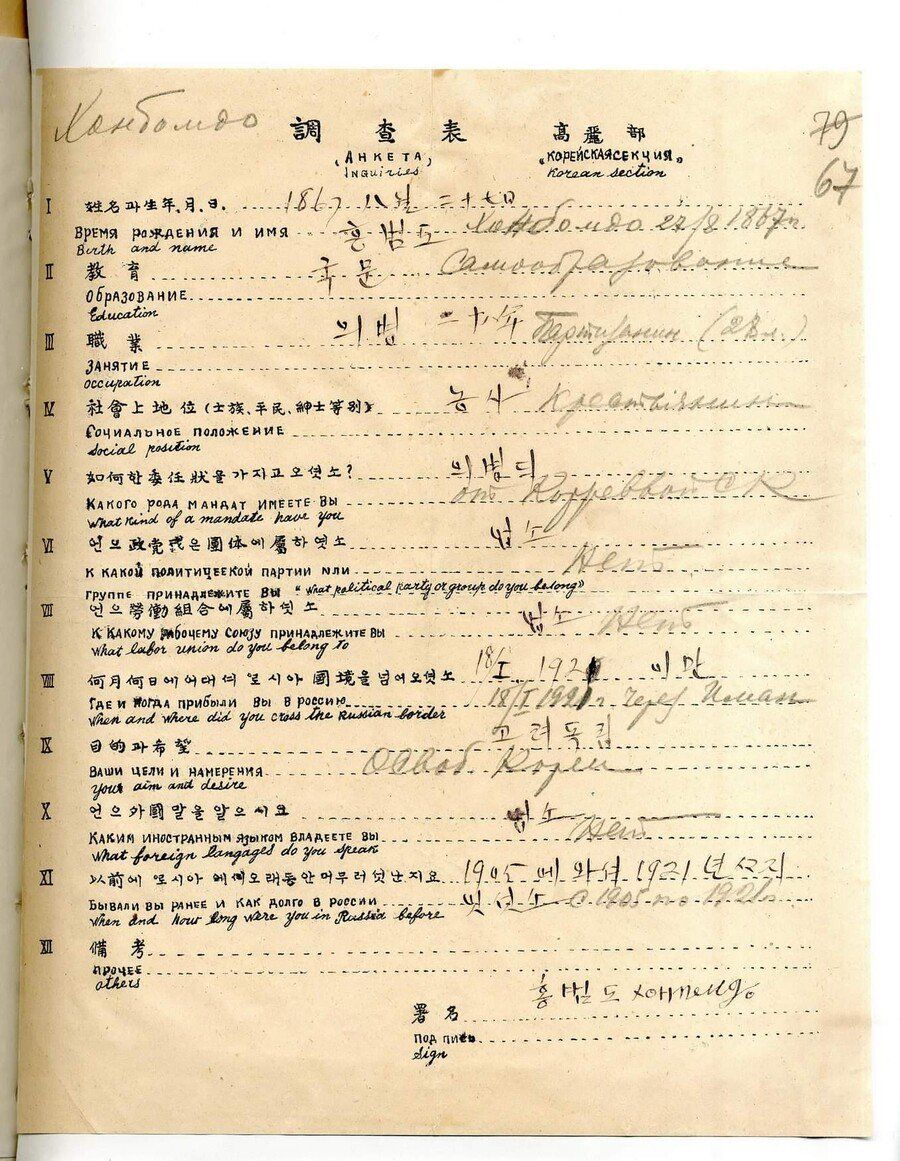 Ханбомдо
調查表 高麗部
79
(АНКЕТА) "КОРЕЙСКАЯ СЕКЦИЯ"
Inquiries Korean section
67
I 姓名과生年,月,日. 1867 八월 二十七日
ВРЕМЯ РОЖДЕНИЯ И ИМЯ 홍범도 Ханбомдо 27/8 1867г.
Birth and name
II 教育 국문 Самообразование
ОБРАЗОВАНИЕ
Education
III 職業 의병 二十年 Партизанин
ЗАНЯТИЕ
occupation
IV 社會上地位(士族、平民、紳士等別) 농사 Крестьянин
СОЦИАЛЬНОЕ ПОЛОЖЕНИЕ
Social position
V 如何한委任狀을가지고오셧소? 의병
КАКОГО РОДА МАНДАТ ИМЕЕТЕ ВЫ от
What kind of a mandate have you
VI 언으政党或은團体에屬하엿소 업소
К КАКОЙ ПОЛИТИЧЕСКОЙ ПАРТИИ ИЛИ Нет
ГРУППЕ ПРИНАДЛЕЖИТЕ ВЫ "What political party or group do you belong"
VII 언으勞働組合에屬하셧소 업소 Нет
К КАКОМУ РАБОЧЕМУ СОЮЗУ ПРИНАДЛЕЖИТЕ ВЫ
What labor union do you belong to
VIII 何月何日에어대셔로시아國境을넘어오셧소 18/I 1921 이만
ГДЕ И КОГДА ПРИБЫЛИ ВЫ В РОССИЮ 18/I 1921г через Иман
When and where did you cross the Russian border
IX 目的과希望 고려독립
ВАШИ ЦЕЛИ И НАМЕРЕНИЯ Освоб. Кореи
your aim and desire
X 언으外國말을알으시요 업소
КАКИМ ИНОСТРАННЫМ ЯЗЫКОМ ВЛАДЕЕТЕ ВЫ Нет
What foreign langages do you speak
XI 以前에로시아에 오래동안머무러섯난지요 1905에와셔1921년
БЫВАЛИ ВЫ РАНЕЕ И КАК ДОЛГО В РОССИИ с 1905 по 1921г
When and how long were you in Russia before
XII 備考
ПРОЧЕЕ
others
홍범도
署名
ПОДПИСЬ
Sign